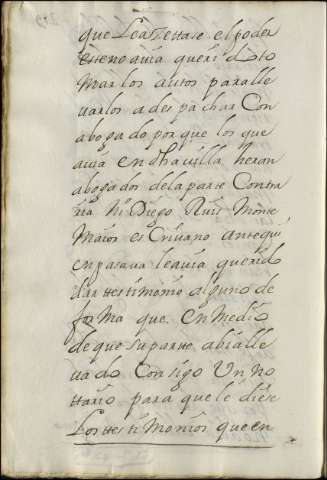 que Leazettase el poder
este no avia querido to
mar los autos para lle
varlos a despachar Con
abogado por que los que
avia en dha villa heran
abogados de la parte Contra
ria Ni Diego Ruis Monte
Maior esCrivano ante qui
en pasava le avia querido
dar testimonio alguno de
forma que en medio
de que su parte abia lle
vado Consigo Un no
ttario para que le diese
Los testimonios que en